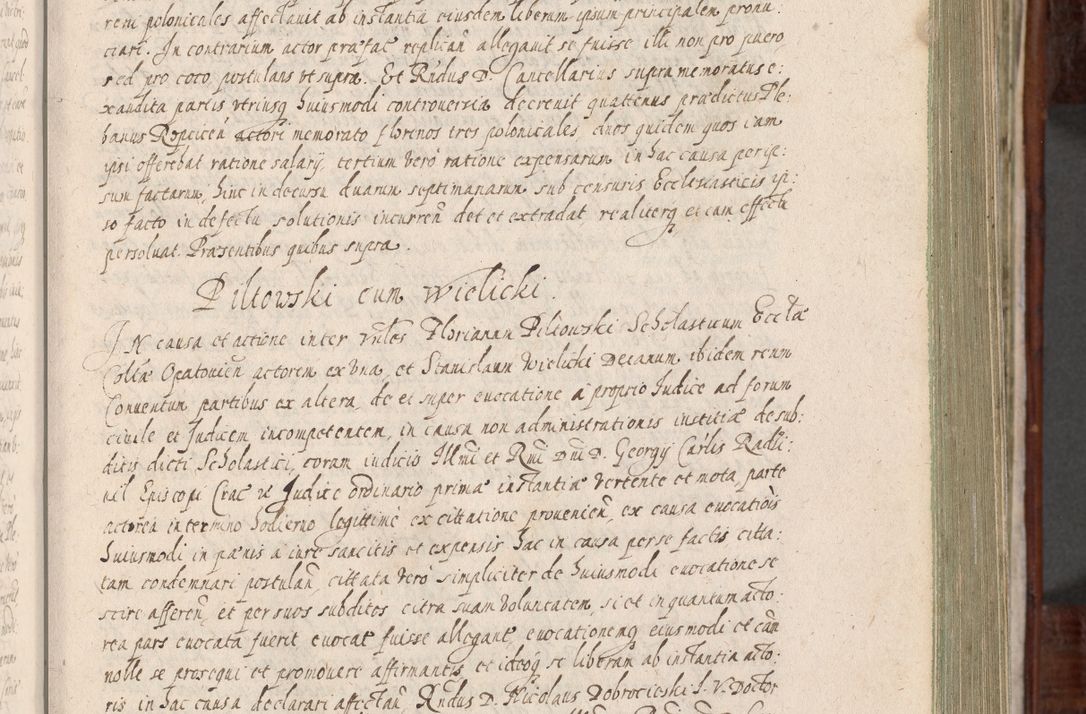 rem polonicales affectauit ab instantia eiusdem liberum ipsum principalem pronu:
ciari. In contrarium actor præfat replicań allegauit se fuisse illi non pro puero,
sed pro coco, postulans vt supra. Et Rndus D. Cancellarius supra memoratus e:
xaudita partis vtriusq huiusmodi controuersia decreuit quattenus prædictus Ple:
banus Ropciceń actori memorato florenos tres polonicales duos quidem quos iam
ipsi offerebat ratione salarij, tertium verò ratione expensarum in hac causa per ip:
sum factarum, hinc in decursu duarum septimanarum sub censuris Ecclesiasticis ip:
so facto in defectu solutionis incurreń det et extradat realiterq et cum effectu
persoluat. Præsentibus quibus supra.
Piltowski cum Wielicki.
IN causa et actione inter Vnles Florianum Piltowski Scholasticum Eccłæ
Collæ Opatouień actorem ex vna, et Stanislaum Wielicki Decanum ibidem reum
Conuentum partibus ex altera, de et super euocatione à proprio Iudice ad forum
ciuile et Iudicem incompetentem, in causa non administrationis iustitiæ de sub:
ditis dicti Scholastici, coram iudicio Illmi et Rmi Dni D. Georgy Carlis Radzi:
uil Episcopi Crac vt Iudice ordinario primæ instantiæ vertente et mota, parte
actorea in termino hodierno legittimè ex cittatione prouenień, ex causa euocatiois
huiusmodi in pænis à iure sancitis et expensis hac in causa per se factis citta:
tam condemnari postulań, cittata verò simpliciter de huiusmodi euocatione se
scire affereń, et per suos subditos citra suam voluntatem, si et in quantum acto:
rea pars euocata fuerit euocat fuisse allegant, euocationemq eiusmodi et cań
nolle se prosequi et promouere affirmantis, et ideoq se liberam ab instantia acto:
ris in hac causa declarari affectań, Rndus D. Nicolaus Dobrocieski I. V. Doctor